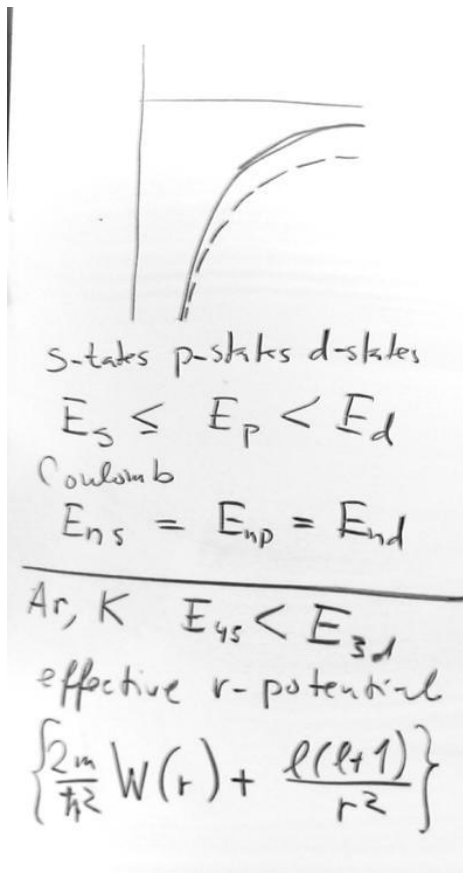 s-tates p-states d-states
E_s ≤ E_p < E_d
Coulomb
E_ns = E_np = E_nd
Ar, K E_4s < E_3d
effective r-potential
{2m/ħ² W(r) + ℓ(ℓ+1)/r²}